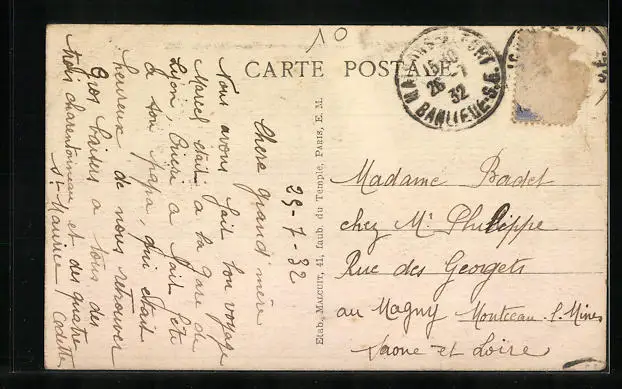 10
CARTE POSTALE
MAISONS-ALFORT
15 30
26 - 7
32
BANLIEUE-S.E.
25-7-32
Chere grand'mère
Nous avons fait bon voyage
Marcel était à la gare de
Lyon, a fait fête
à son papa qui était
heureux de nous retrouver
Gros baisers à tous des
trois charentonneau et des quatre
St Maurice Cadette
Etab. MALCUIT, 41, faub. du Temple, PARIS, E. M.
Madame Badet
chez Mr Philippe
Rue des Georgets
au Magny Montceau-l-Mines
Saone et Loire